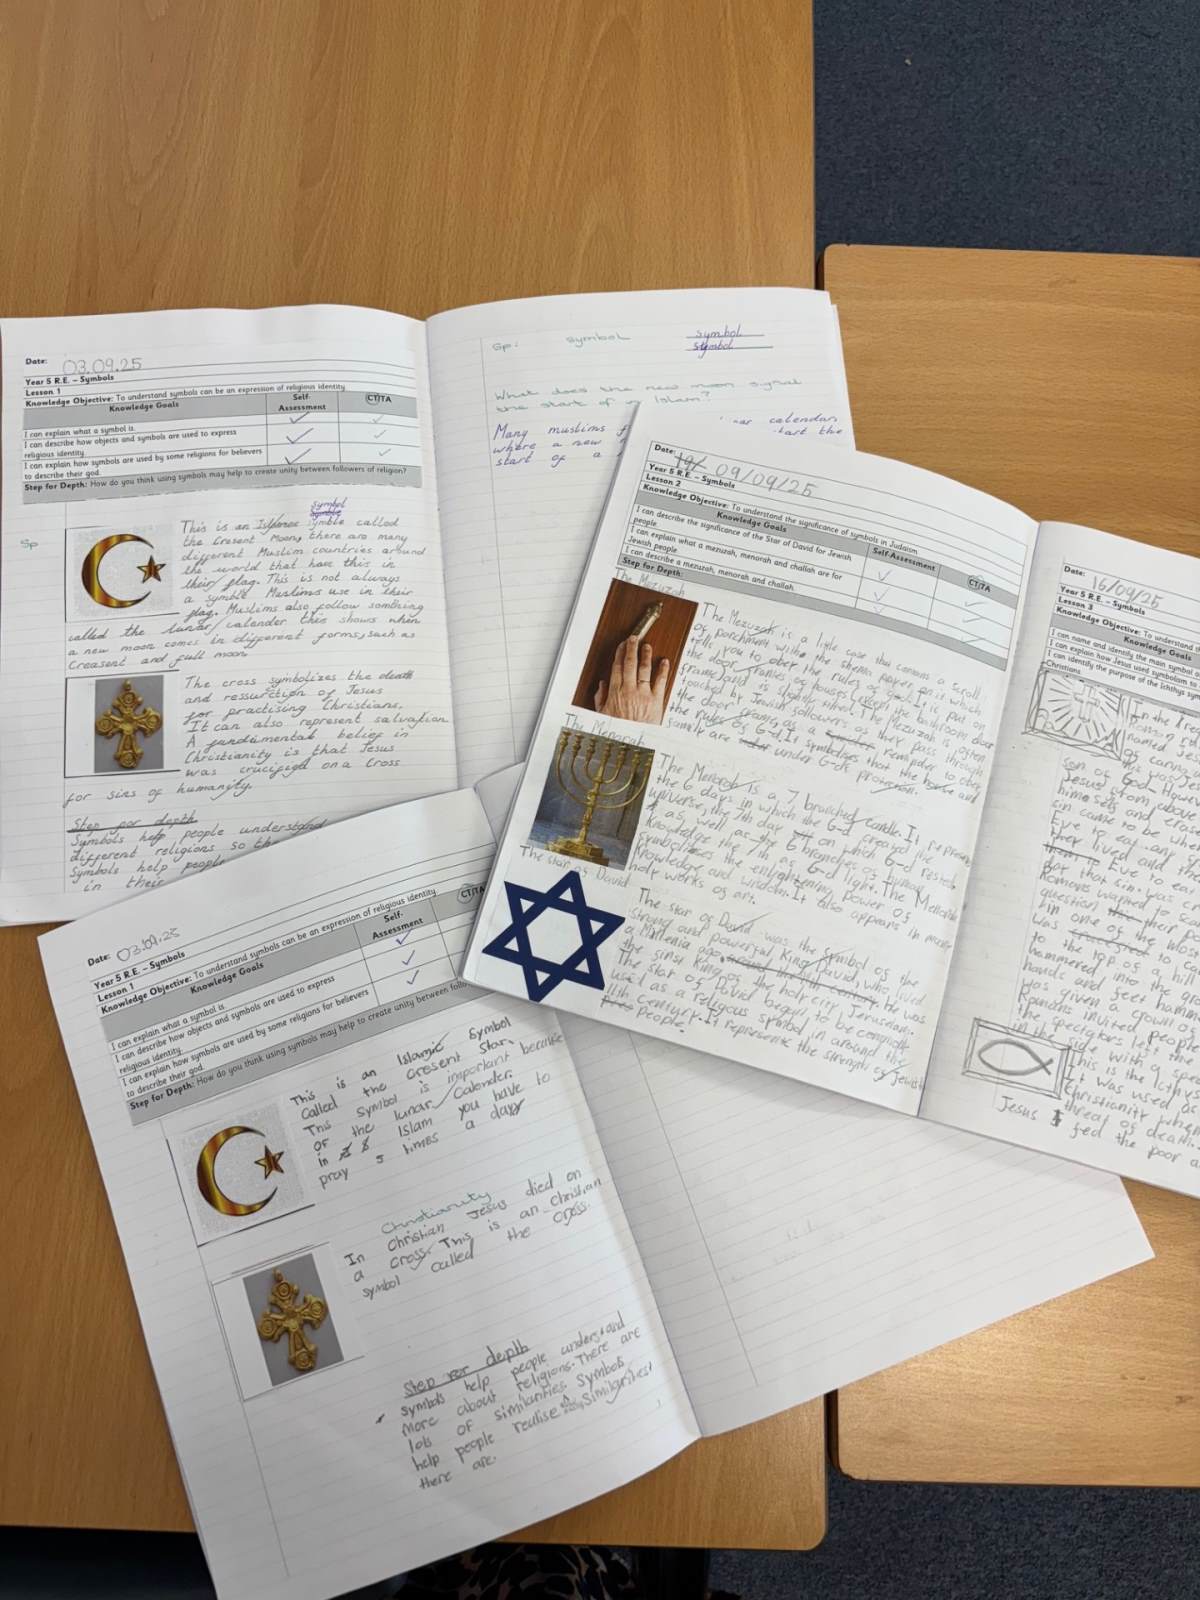 Date: 03.09.25
Year 5 R.E. – Symbols
Lesson 1
Knowledge Objective: To understand symbols can be an expression of religious identity
Knowledge Goals
Self-
Assessment
CT/TA
I can explain what a symbol is.
I can describe how objects and symbols are used to express
religious identity
I can explain how symbols are used by some religions for believers
to describe their god.
Step for Depth: How do you think using symbols may help to create unity between followers of religion?
symbol
Sp
This is an symble called
the Cresent Moon, there are many
different Muslim countries around
the world that have this in
their flag. This is not always
a symble Muslims use in their
flag. Muslims also follow somthing
called the lunar calender this shows when
a new moon comes in different forms, such as
Creasent and full moon
The cross symbolizes the death
and ressurction of Jesus
for practising Christians.
It can also represent salvation
A fundimental belief in
Christianity is that Jesus
was crucified on a Cross
for sins of humanity.
Step for depth
Symbols help people understand
different religions so
Symbols help people
in their
Sp: symbol symbol
symbol
What does the new moon signal
the start of in Islam?
Many muslims calendar,
where a new start the
start of a
Date: 09/09/25
Year 5 R.E. – Symbols
Lesson 2
Knowledge Objective: To understand the significance of symbols in Judaism
Knowledge Goals
Self-Assessment
CT/TA
I can describe the significance of the Star of David for Jewish
people
I can explain what a mezuzah, menorah and challah are for
Jewish people
I can describe a mezuzah, menorah and challah.
Step for Depth:
The Mezuzah
The Mezuzah is a little case that contains a scroll
of parchment withe the shema prayer on it which
tells you to ober the rules of god. It is put on
the door frames of houses (exept the bathroom door
frame) and is slightly tilted. The Mezuzah is often
touched by Jewish followers as they pass through
the door frame, as a reminder to obey
the rules of G-d. It symbolises that the house and
family are under G-d's protection.
The Menorah
The Menorah is a 7 branched candle. It represents
the 6 days in which the G-d created the
universe, the 7th day on which G-d rested.
as well as the 6 branches of human
knowledge the 7th as God light. The Menorah
symbolizes the enlightening power of
knowledge and wisdom. It also appears in many
holy works of art.
The star of David
The star of David was the symbol of the
strong and powerful, King David, who lived
a Millenia ago. He was
the first king of the holy city Jerusalem.
The star of David begun to be commonly
used as a religious symbol in around the
11th century. It represents the strength of Jewish
people.
Date: 16/09/25
Year 5 R.E. – Symbols
Lesson 3
Knowledge Objective: To understand
Knowledge Goals
I can name and identify the main symbol
I can explain how Jesus used symbolism to
I can identify the purpose of the Ichthys
Christians
In the
Roman
named Jes
of
this was Je
son of God. Howe
Jesus from above
himself and
sin came to be when
Eve to eat any of the
they lived and the
Eve to ea
for that sin.
Romans wanted to
question their
in one of the most
was to
to the top of a hill
hammered into the
hands and feet hamm
was given a crown of
Romans invited people
the spectators left the
in the side with a spe
This is the Icthys
It was used as
Christianity when
threat of death.
Jesus fed the poor
Date: 03.09.25
Year 5 R.E. – Symbols
Lesson 1
Knowledge Objective: To understand symbols can be an expression of religious identity
Knowledge Goals
Self-
Assessment
CT/TA
I can explain what a symbol is.
I can describe how objects and symbols are used to express
religious identity
I can explain how symbols are used by some religions for believers
to describe their god.
Step for Depth: How do you think using symbols may help to create unity between
This is an Islamic symbol
called the cresent star.
This symbol is important because
of the lunar calender.
in Islam you have to
pray 5 times a day
Christianity
In Christian Jesus died on
a cross. This is an Christian
symbol called the cross.
Step for depth
symbols help people understand
more about religions. There are
lots of similarities. Symbols
help people realise similarities
there are.